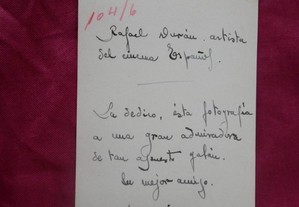 104/6
Rafael Durán, artista
del cinema Español.
La dedico, ésta fotografía
a una gran admiradora
de tan apuesto galán.
Su mejor amigo.